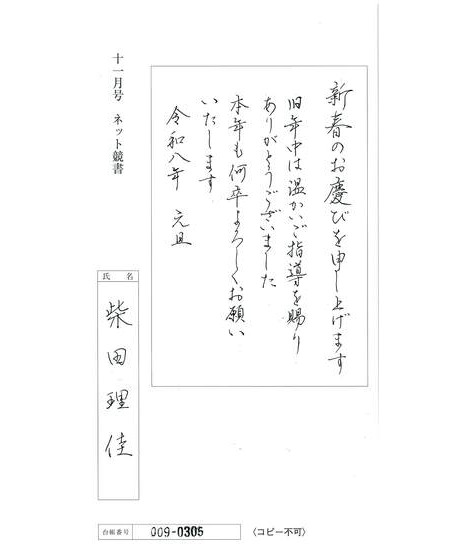 新春のお慶びを申し上げます
旧年中は温かいご指導を賜り
ありがとうございました
本年も何卒よろしくお願い
いたします
令和八年　元旦
十一月号　ネット競書
氏　名
柴田理佳
台帳番号
009-0305
〈コピー不可〉